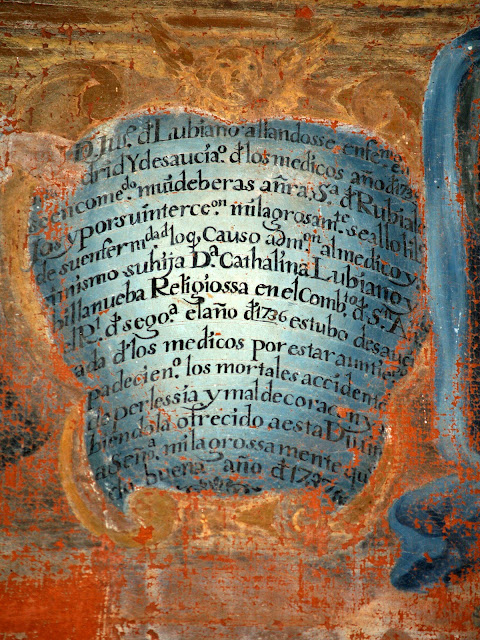 D. Jul.º dLubiano allandosse enfermo
drid Y desaucia.º dlos medicos año d1735
se encome.do mui deberas añra, S.a d Rubiale
jos y por su interce.on milagrosam.te se allo lib
de su enferm.dad d loq, Causo adm.on almedico y
mismo su hija D.a Cathalina Lubiano y
billanueba Religiossa en el Comb.to d S.n A
d sego.a el año d1736 estubo desauci
ada dlos medicos por estar a un tien
padecien.o los mortales accidente
de perlessia y mal de coraçon y
biendola ofrecido a esta Diuin
a Señ.a milagrossamente qu
da buena año d